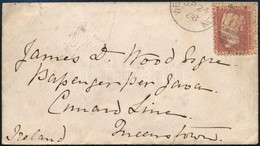 James D. Wood Esqre
Passenger per Java
Cunard Line
Queenstown.
Ireland